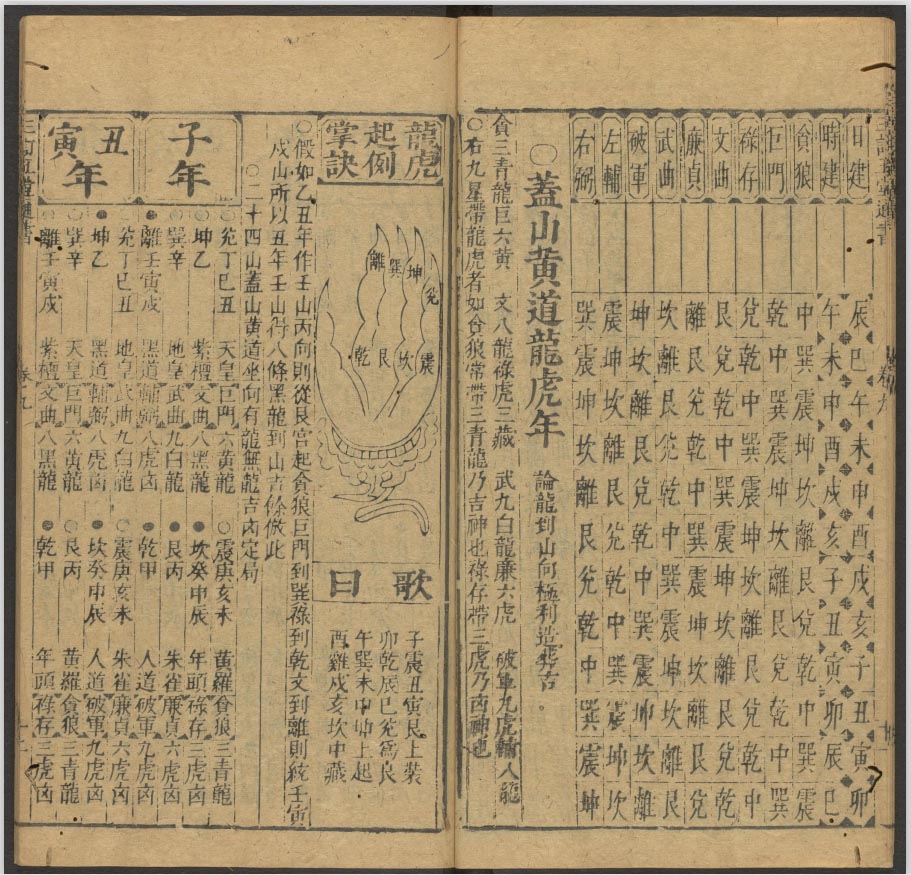 日建 辰巳午未申酉戌亥子丑寅卯
時建 午未申酉戌亥子丑寅卯巳
貪狼 中巽震坤坎離艮兌乾中巽震
巨門 乾中巽震坤坎離艮兌乾中巽
祿存 兌乾中巽震坤坎離艮兌乾中
文曲 艮兌乾中巽震坤坎離艮兌乾
廉貞 離艮兌乾中巽震坤坎離艮兌
武曲 坎離艮兌乾中巽震坤坎離艮
破軍 坤坎離艮兌乾中巽震坤坎離
左輔 震坤坎離艮兌乾中巽震坤坎
右弼 巽震坤坎離艮兌乾中巽震坤
○蓋山黃道龍虎年 論龍到山向極利造葬吉
貪三青龍巨六黃 文八龍祿虎三藏 武九白龍廉六虎 破軍九虎輔八龍
○右九星帶龍虎者如貪狼常帶三青龍乃吉神也祿存帶三虎乃凶神也
龍虎
起例
掌訣
離
巽
坤
兌
乾
艮
坎
震
歌曰
子震丑寅艮上裝
卯乾辰巳兌為良
午巽未申坤上起
酉離戌亥坎中藏
○假如乙丑年作壬山丙向則從艮宮起貪狼巨門到巽祿到乾文到離則統壬寅
戌山所以丑年壬山得八條黑龍到山吉餘倣此
○二十四山蓋山黃道坐向有龍無龍吉凶定局
子年
○兌丁巳丑 天皇巨門六黃龍 ○震庚亥未 黃羅貪狼三青龍
坤乙 紫檀文曲八黑龍 ●坎癸申辰 年頭祿存三虎凶
巽辛 地皇武曲九白龍 ●艮丙 朱雀廉貞六虎凶
●離壬寅戌 黑道輔弼八虎凶 ●乾甲 人道破軍九虎凶
丑寅年
兌丁巳丑 地皇武曲九白龍 震庚亥未 朱雀廉貞六虎凶
●坤乙 黑道輔弼八虎凶 ●坎癸申辰 人道破軍九虎凶
○巽辛 天皇巨門六黃龍 ○艮丙 黃羅貪狼三青龍
離壬寅戌 紫檀文曲八黑龍 ●乾甲 年頭祿存三虎凶
卷九